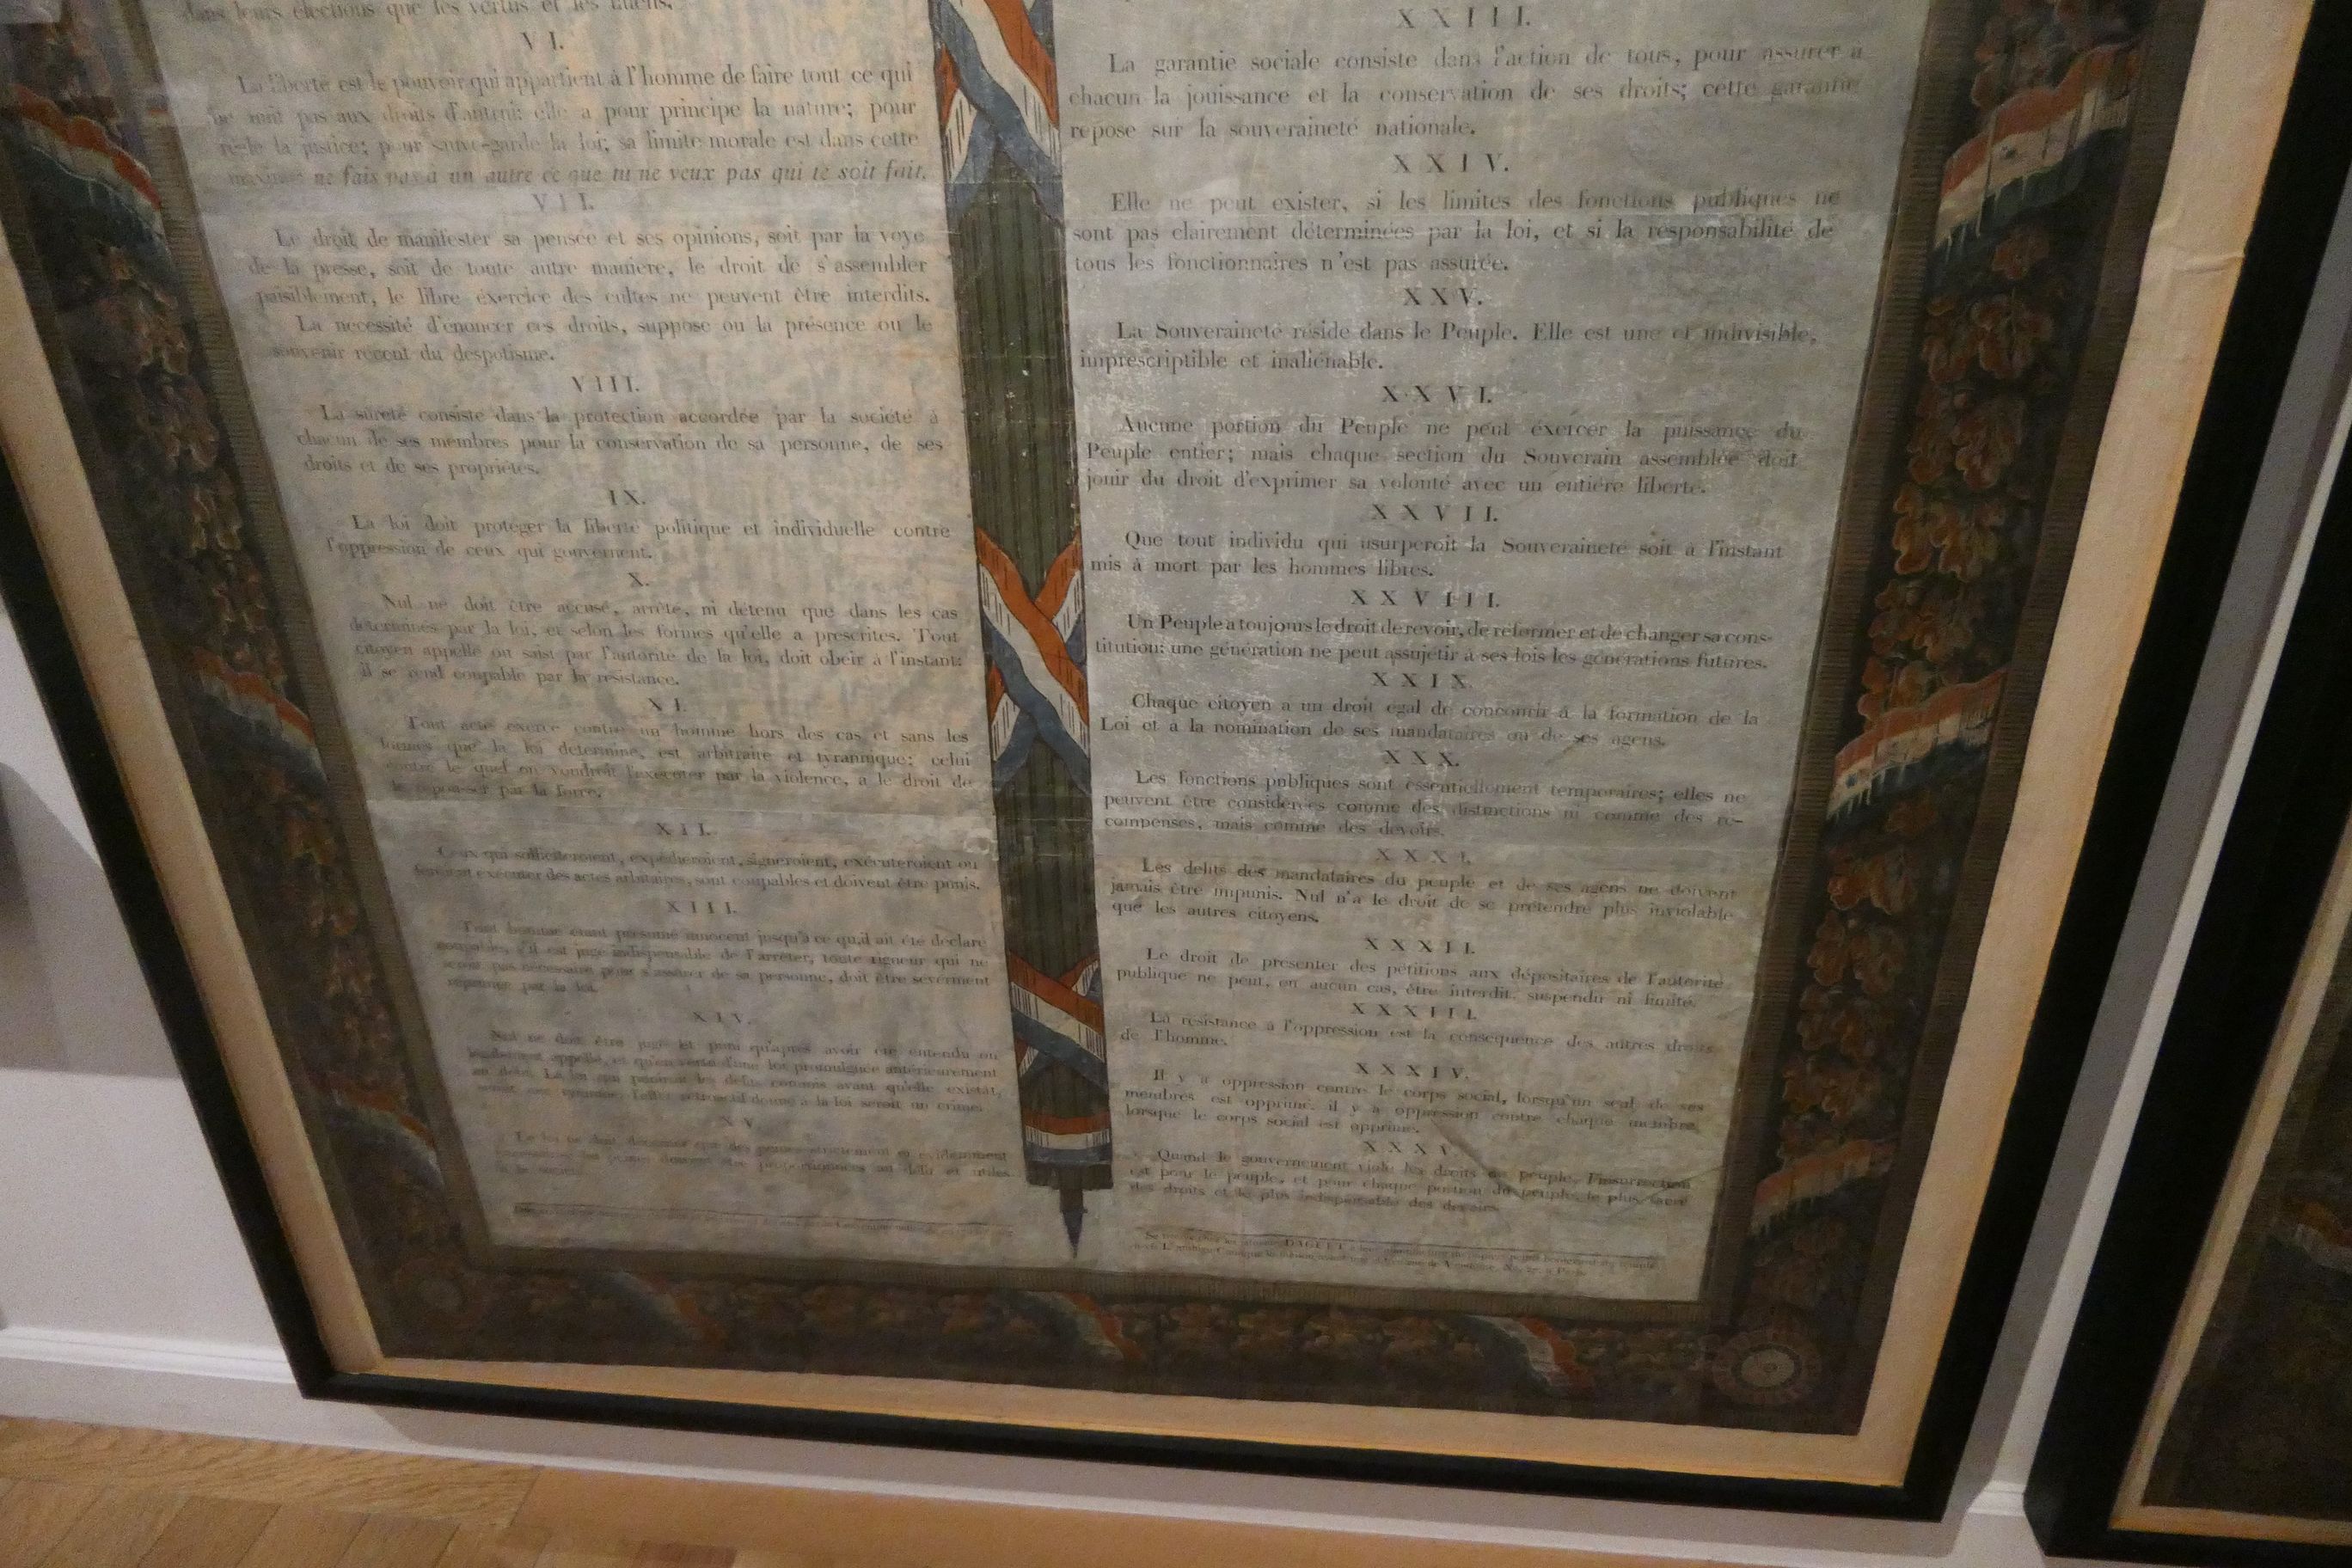 dans leurs élections que les vertus et les talens.
VI.
La liberté est le pouvoir qui appartient à l'homme de faire tout ce qui
ne nuit pas aux droits d'autrui: elle a pour principe la nature; pour
règle la justice; pour sauve-garde la loi; sa limite morale est dans cette
maxime: ne fais pas à un autre ce que tu ne veux pas qui te soit fait.
VII.
Le droit de manifester sa pensée et ses opinions, soit par la voye
de la presse, soit de toute autre manière, le droit de s'assembler
paisiblement, le libre éxercice des cultes ne peuvent être interdits.
La nécessité d'énoncer ces droits, suppose ou la présence ou le
souvenir récent du despotisme.
VIII.
La sûreté consiste dans la protection accordée par la société à
chacun de ses membres pour la conservation de sa personne, de ses
droits et de ses propriétés.
IX.
La loi doit protéger la liberté politique et individuelle contre
l'oppression de ceux qui gouvernent.
X.
Nul ne doit être accusé, arrêté, ni détenu que dans les cas
déterminés par la loi, et selon les formes qu'elle a prescrites. Tout
citoyen appellé ou saisi par l'autorité de la loi, doit obéir à l'instant;
il se rend coupable par la résistance.
XI.
Tout acte exercé contre un homme hors des cas et sans les
formes que la loi détermine, est arbitraire et tyrannique; celui
contre le quel on voudroit l'exécuter par la violence, a le droit de
le repousser par la force.
XII.
Ceux qui solliciteroient, expédieroient, signeroient, exécuteroient ou
feroient exécuter des actes arbitraires, sont coupables et doivent être punis.
XIII.
Tout homme étant présumé innocent jusqu'à ce qu'il ait été déclaré
coupable, s'il est jugé indispensable de l'arrêter, toute rigueur qui ne
seroit pas nécessaire pour s'assurer de sa personne, doit être sévèrment
réprimée par la loi.
XIV.
Nul ne doit être jugé et puni qu'après avoir été entendu ou
légalement appellé, et qu'en vertu d'une loi promulguée antérieurement
au délit. La loi qui puniroit les délits commis avant qu'elle existât,
seroit une tyrannie; l'effet rétroactif donné à la loi seroit un crime.
XV
La loi ne doit décerner que des peines strictement et évidemment
nécessaires: les peines doivent être proportionnées au délit et utiles
à la société.
XXIII.
La garantie sociale consiste dans l'action de tous, pour assurer à
chacun la jouissance et la conservation de ses droits; cette garantie
repose sur la souveraineté nationale.
XXIV.
Elle ne peut exister, si les limites des fonctions publiques ne
sont pas clairement déterminées par la loi, et si la responsabilité de
tous les fonctionnaires n'est pas assurée.
XXV.
La Souveraineté réside dans le Peuple. Elle est une et indivisible,
imprescriptible et inaliénable.
XXVI.
Aucune portion du Peuple ne peut éxercer la puissance du
Peuple entier; mais chaque section du Souverain assemblée doit
jouir du droit d'exprimer sa volonté avec un entiére liberté.
XXVII.
Que tout individu qui usurperoit la Souveraineté soit à l'instant
mis à mort par les hommes libres.
XXVIII.
Un Peuple a toujours le droit de revoir, de réformer et de changer sa cons-
titution: une génération ne peut assujetir à ses lois les générations futures.
XXIX.
Chaque citoyen a un droit égal de concourir à la formation de la
Loi et à la nomination de ses mandataires ou de ses agens.
XXX.
Les fonctions publiques sont essentiellement temporaires; elles ne
peuvent être considérées comme des distinctions ni comme des ré-
compenses, mais comme des devoirs.
XXXI.
Les délits des mandataires du peuple et de ses agens ne doivent
jamais être impunis. Nul n'a le droit de se prétendre plus inviolable
que les autres citoyens.
XXXII.
Le droit de présenter des pétitions aux dépositaires de l'autorité
publique ne peut, en aucun cas, être interdit, suspendu ni limité.
XXXIII.
La résistance à l'oppression est la conséquence des autres droits
de l'homme.
XXXIV.
Il y a oppression contre le corps social, lorsqu'un seul de ses
membres est opprimé, il y a oppression contre chaque membre,
lorsque le corps social est opprimé.
XXXV.
Quand le gouvernement viole les droits du peuple, l'insurrection
est pour le peuple, et pour chaque portion du peuple, le plus sacré
des droits et le plus indispensable des devoirs.
DAGUET